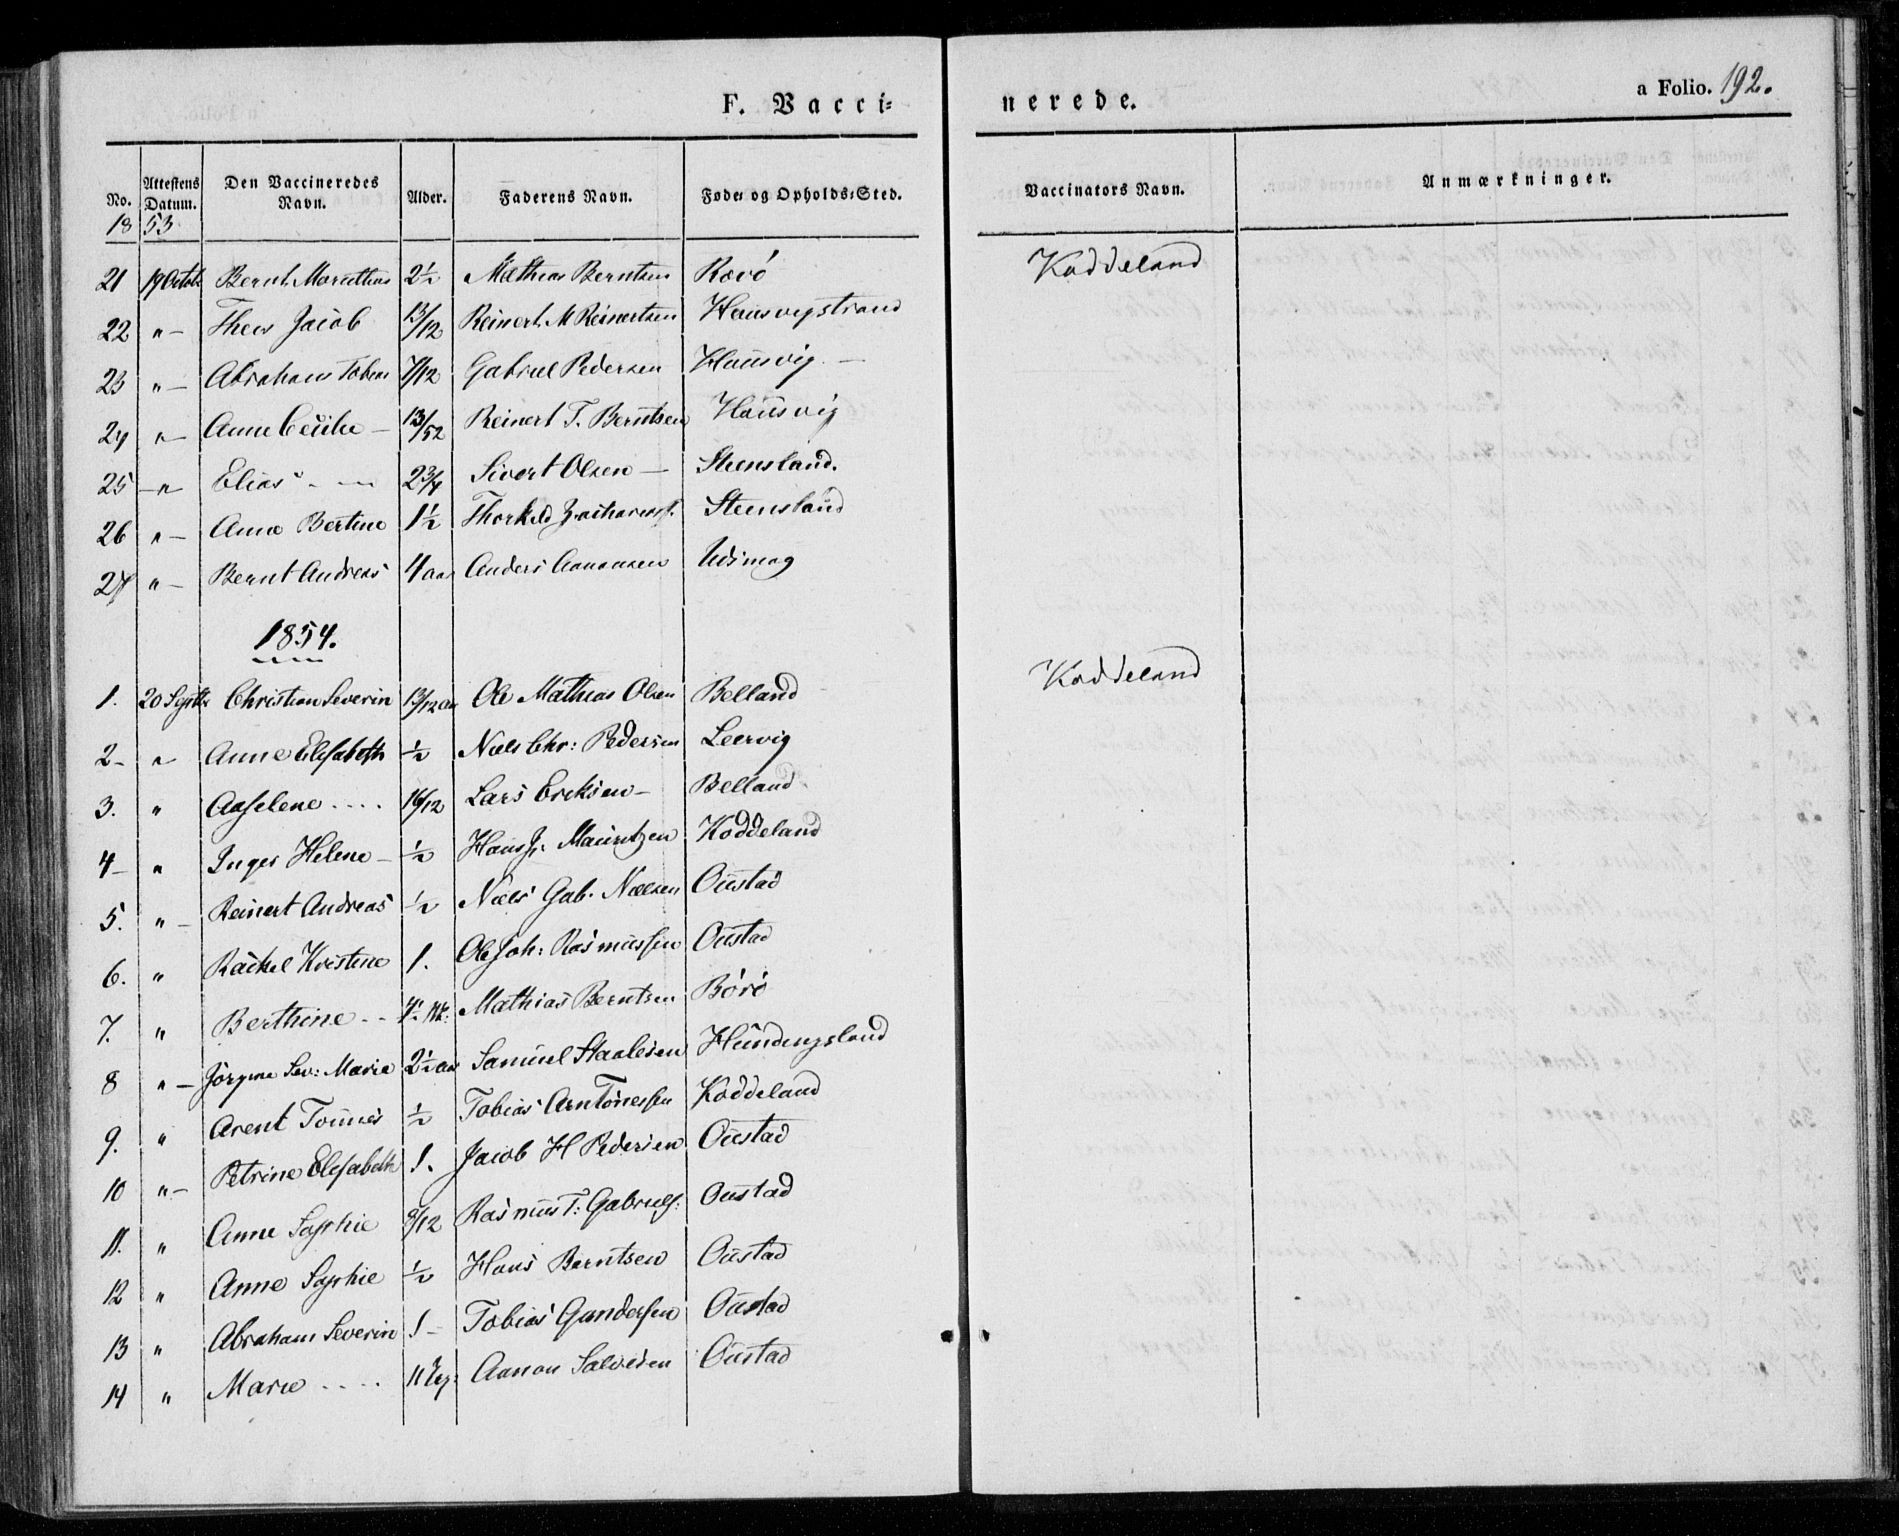 F. Vacci= nerede. a Folio. 192.
No. Attestens Datum. Den Vaccineredes Navn. Alder. Faderens Navn. Føde= og Opholds=Sted. Vaccinators Navn. Anmærkninger.
1853
21 19 Octob Bernt 2½ Mathias Berntsen Rovö Koddeland
22 "- Theis Jacob 13/12 Reinert M Reinertsen Hausvigstrand
23 "- Abraham Tobias 7/12 Gabriel Pedersen Hausvig -
24 "- Anne Cecilie - 13/52 Reinert T. Berntsen Hausvig
25 -"- Elias 2¾ Sivert Olsen - Steensland.
26 "- Anne Bertine 1½ Thorkild Zachariass. Steensland
27 "- Bernt Andreas 4 aar Anders Aanensen Udsmag
1854.
1. 20 Septbr Christian Severin 13/12 aar Ole Mathias Olsen Belland Koddeland
2- " Anne Elisabeth ½ Niels Chr: Pedersen Leervig
3. " Aaselene .... 16/12 Lars Ericksen - Belland
4- " Inger Helene - ½ Hans J. Mauritzen Koddeland
5. "- Reinert Andreas ½ Niels Gab. Nielsen Oustad
6. " Rachel Kristine 1. Ole Joh: Rasmussen Oustad
7. " Berthine - - Mathias Berntsen Börö
8 "- Jörgine Sev: Marie 2½ aar Samuel Staalesen Hundingsland
9. " Arent Tonnes ½ Tobias Arntönessen Koddeland
10 "- Petrine Elisabeth 1. Jacob H Pedersen Oustad
11. " Anne Sophie 8/12 Rasmus T: Gabriels: Oustad
12 " Anne Sophie ½ Hans Berntsen Oustad
13 " Abraham Severin 1 - Tobias Gundersen Oustad
14 " Marie .... Aanon Salvesen Oustad